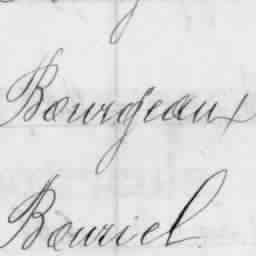 Bourgeaux
Bouriel